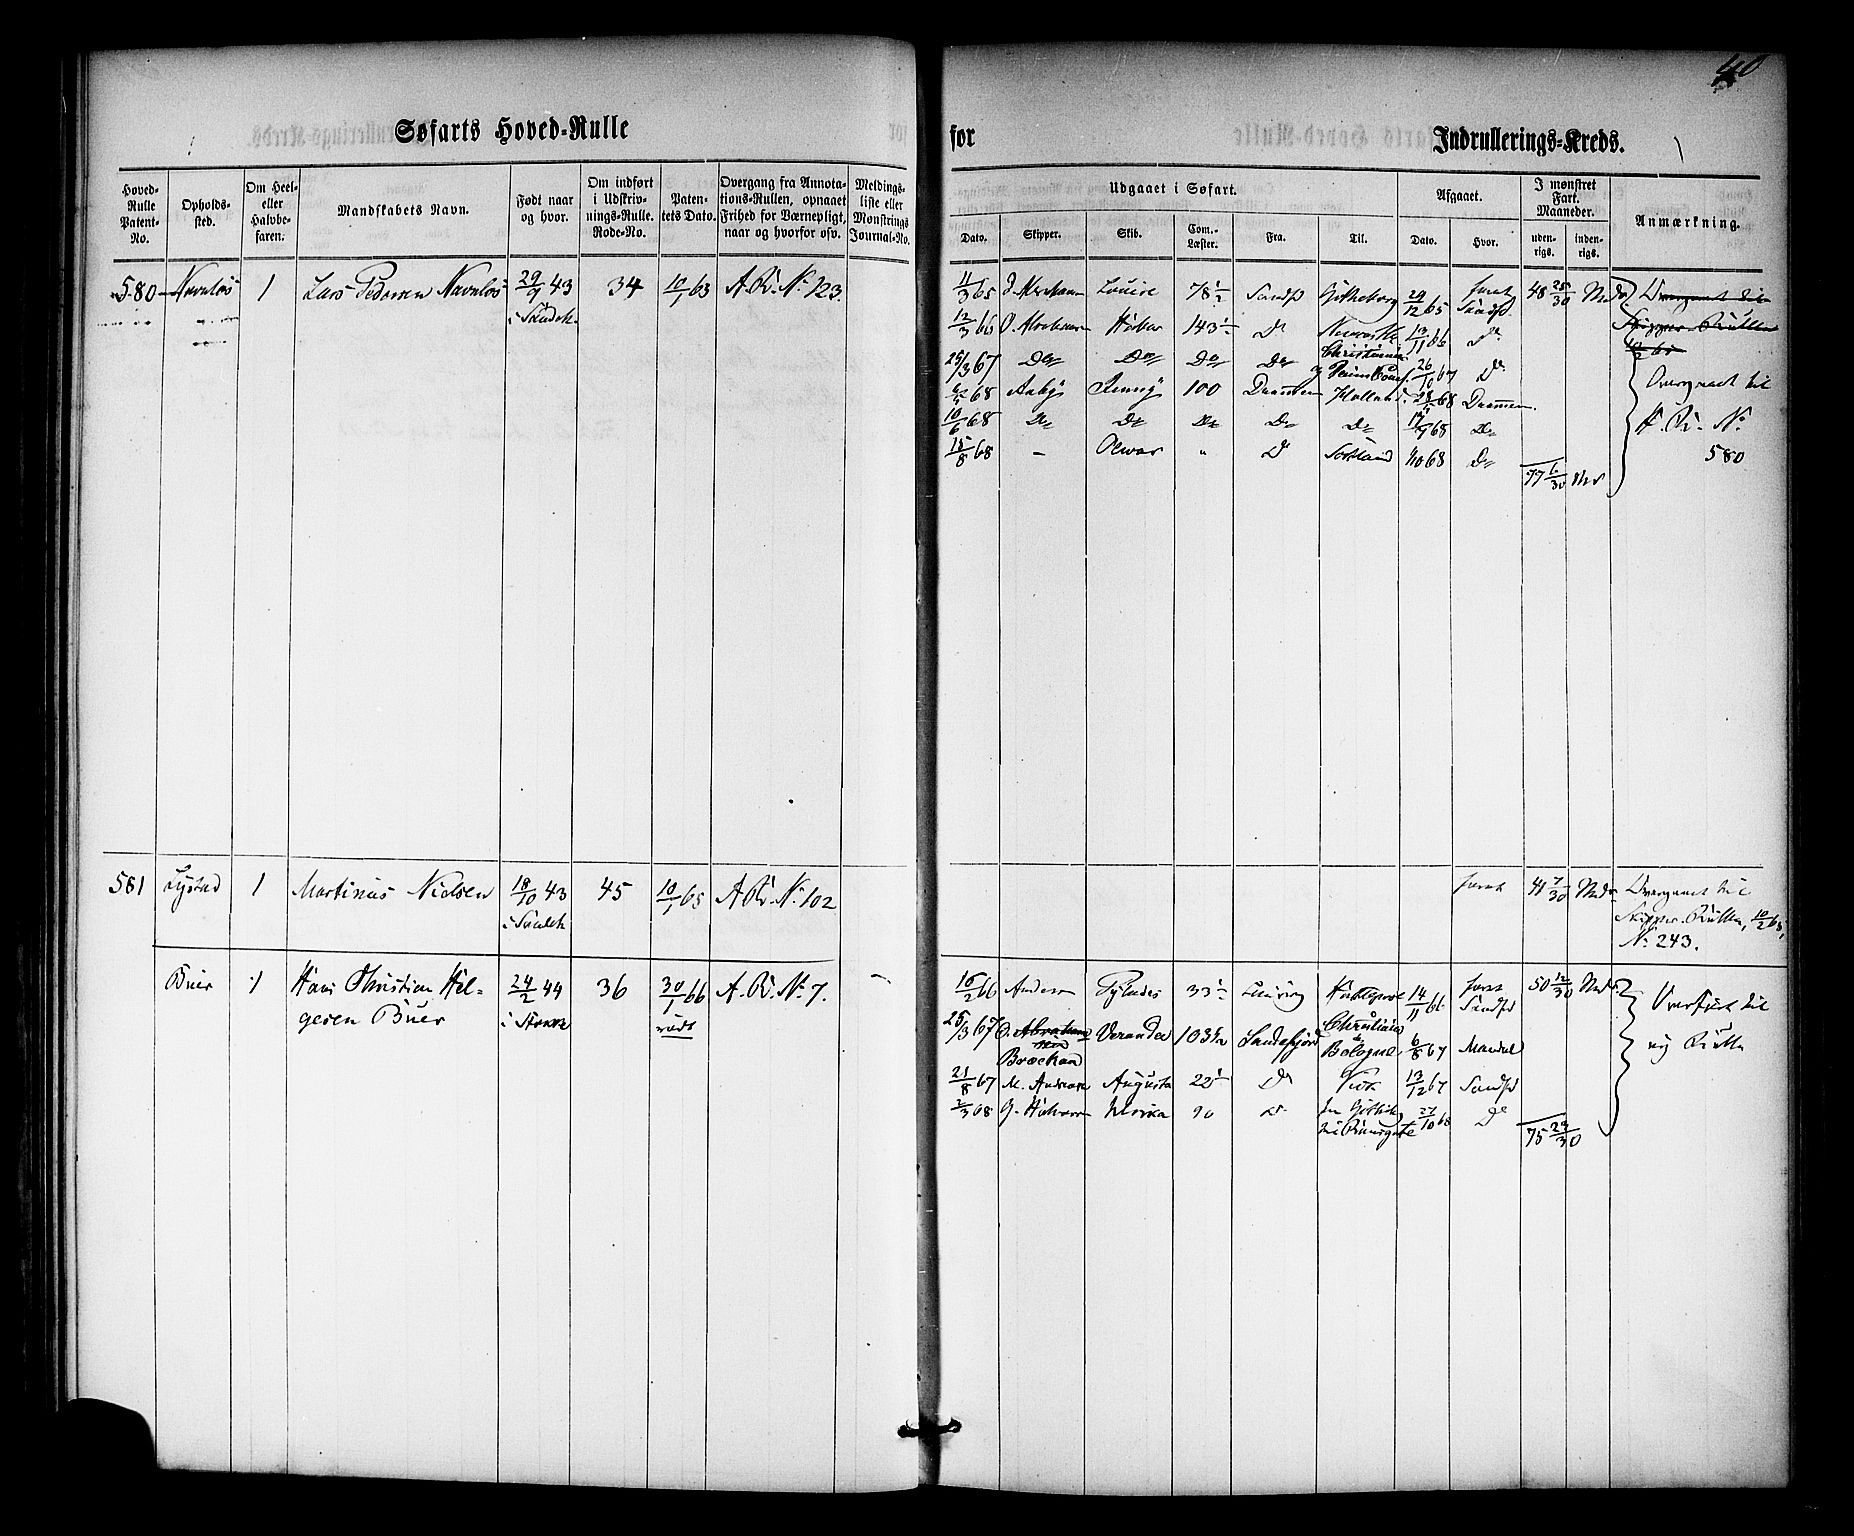 40
Søfarts Hoved-Rulle for Indrullerings-Kreds.
Hoved-Rulle Patent-No. Opholds-sted. Om Heel- eller Halvbe-faren. Mandskabets Navn. Født naar og hvor. Om indført i Udskriv-nings-Rulle. Rode-No. Paten-tets Dato. Overgang fra Annota-tions-Rullen, opnaaet Frihed for Værnepligt, naar og hvorfor osv. Meldings-liste eller Mønstrings Journal-No.
Udgaaet i Søfart. Afgaaet. I mønstret Fart. Maaneder. Anmærkning.
Dato. Skipper. Skib. Com.-Læster. Fra. Til. Dato. Hvor. uden-rigs. inden-rigs.
580 Navnløs 1 Lars Pedersen Navnløs 29/9 43 34 10/1 65 A. R. No 123.
i Sandeh.
11/3 65 Louise 78 1/2 Sandfd Gøtheborg 29/12 65 forat Sandfd. 48 25/30 Mdr. Overgaaet til
12/3 66 O. Abrahamsen 143 1/2 Do Newcastle 13/11 66 Do Skipper-Rullen
25/3 67 Do Do Do Do Christiania 26/10 67 Do
68 Aaby Jenny 100 Drammen Holland 68 Drammen. Overgaaet til
10/6 68 Do Do Do Do Do 68 Do H. R. No
15/8 68 - " Do 68 Do 580
77 6/30 Mdr
581 1 Martinus Nielsen 18/10 43 45 10/1 65 A R. No 102
i Sandeh
forat 41 7/30 Mdr. Overgaaet til
Skipper-Rullen, 10/2 65,
No 243.
Buer 1 Hans Christian Hel-
gesen Buer
24/2 44 36 30/1 66 A. R. No 7. -
16/2 66 Anders Pylades 33 1/2 14/11 66 forat Sandfd 50 12/30 Mdr. Overført til
25/3 67 O. Abraham Veranda 103 1/2 Sandefjord Christiania 6/8 67 Mandal ny Rulle
Bologne
21/8 67 M. Andreas Augusta 22 1/2 Do 13/12 67 Sandfd
2/3 68 90 Do 27/10 68 Do
75 24/30